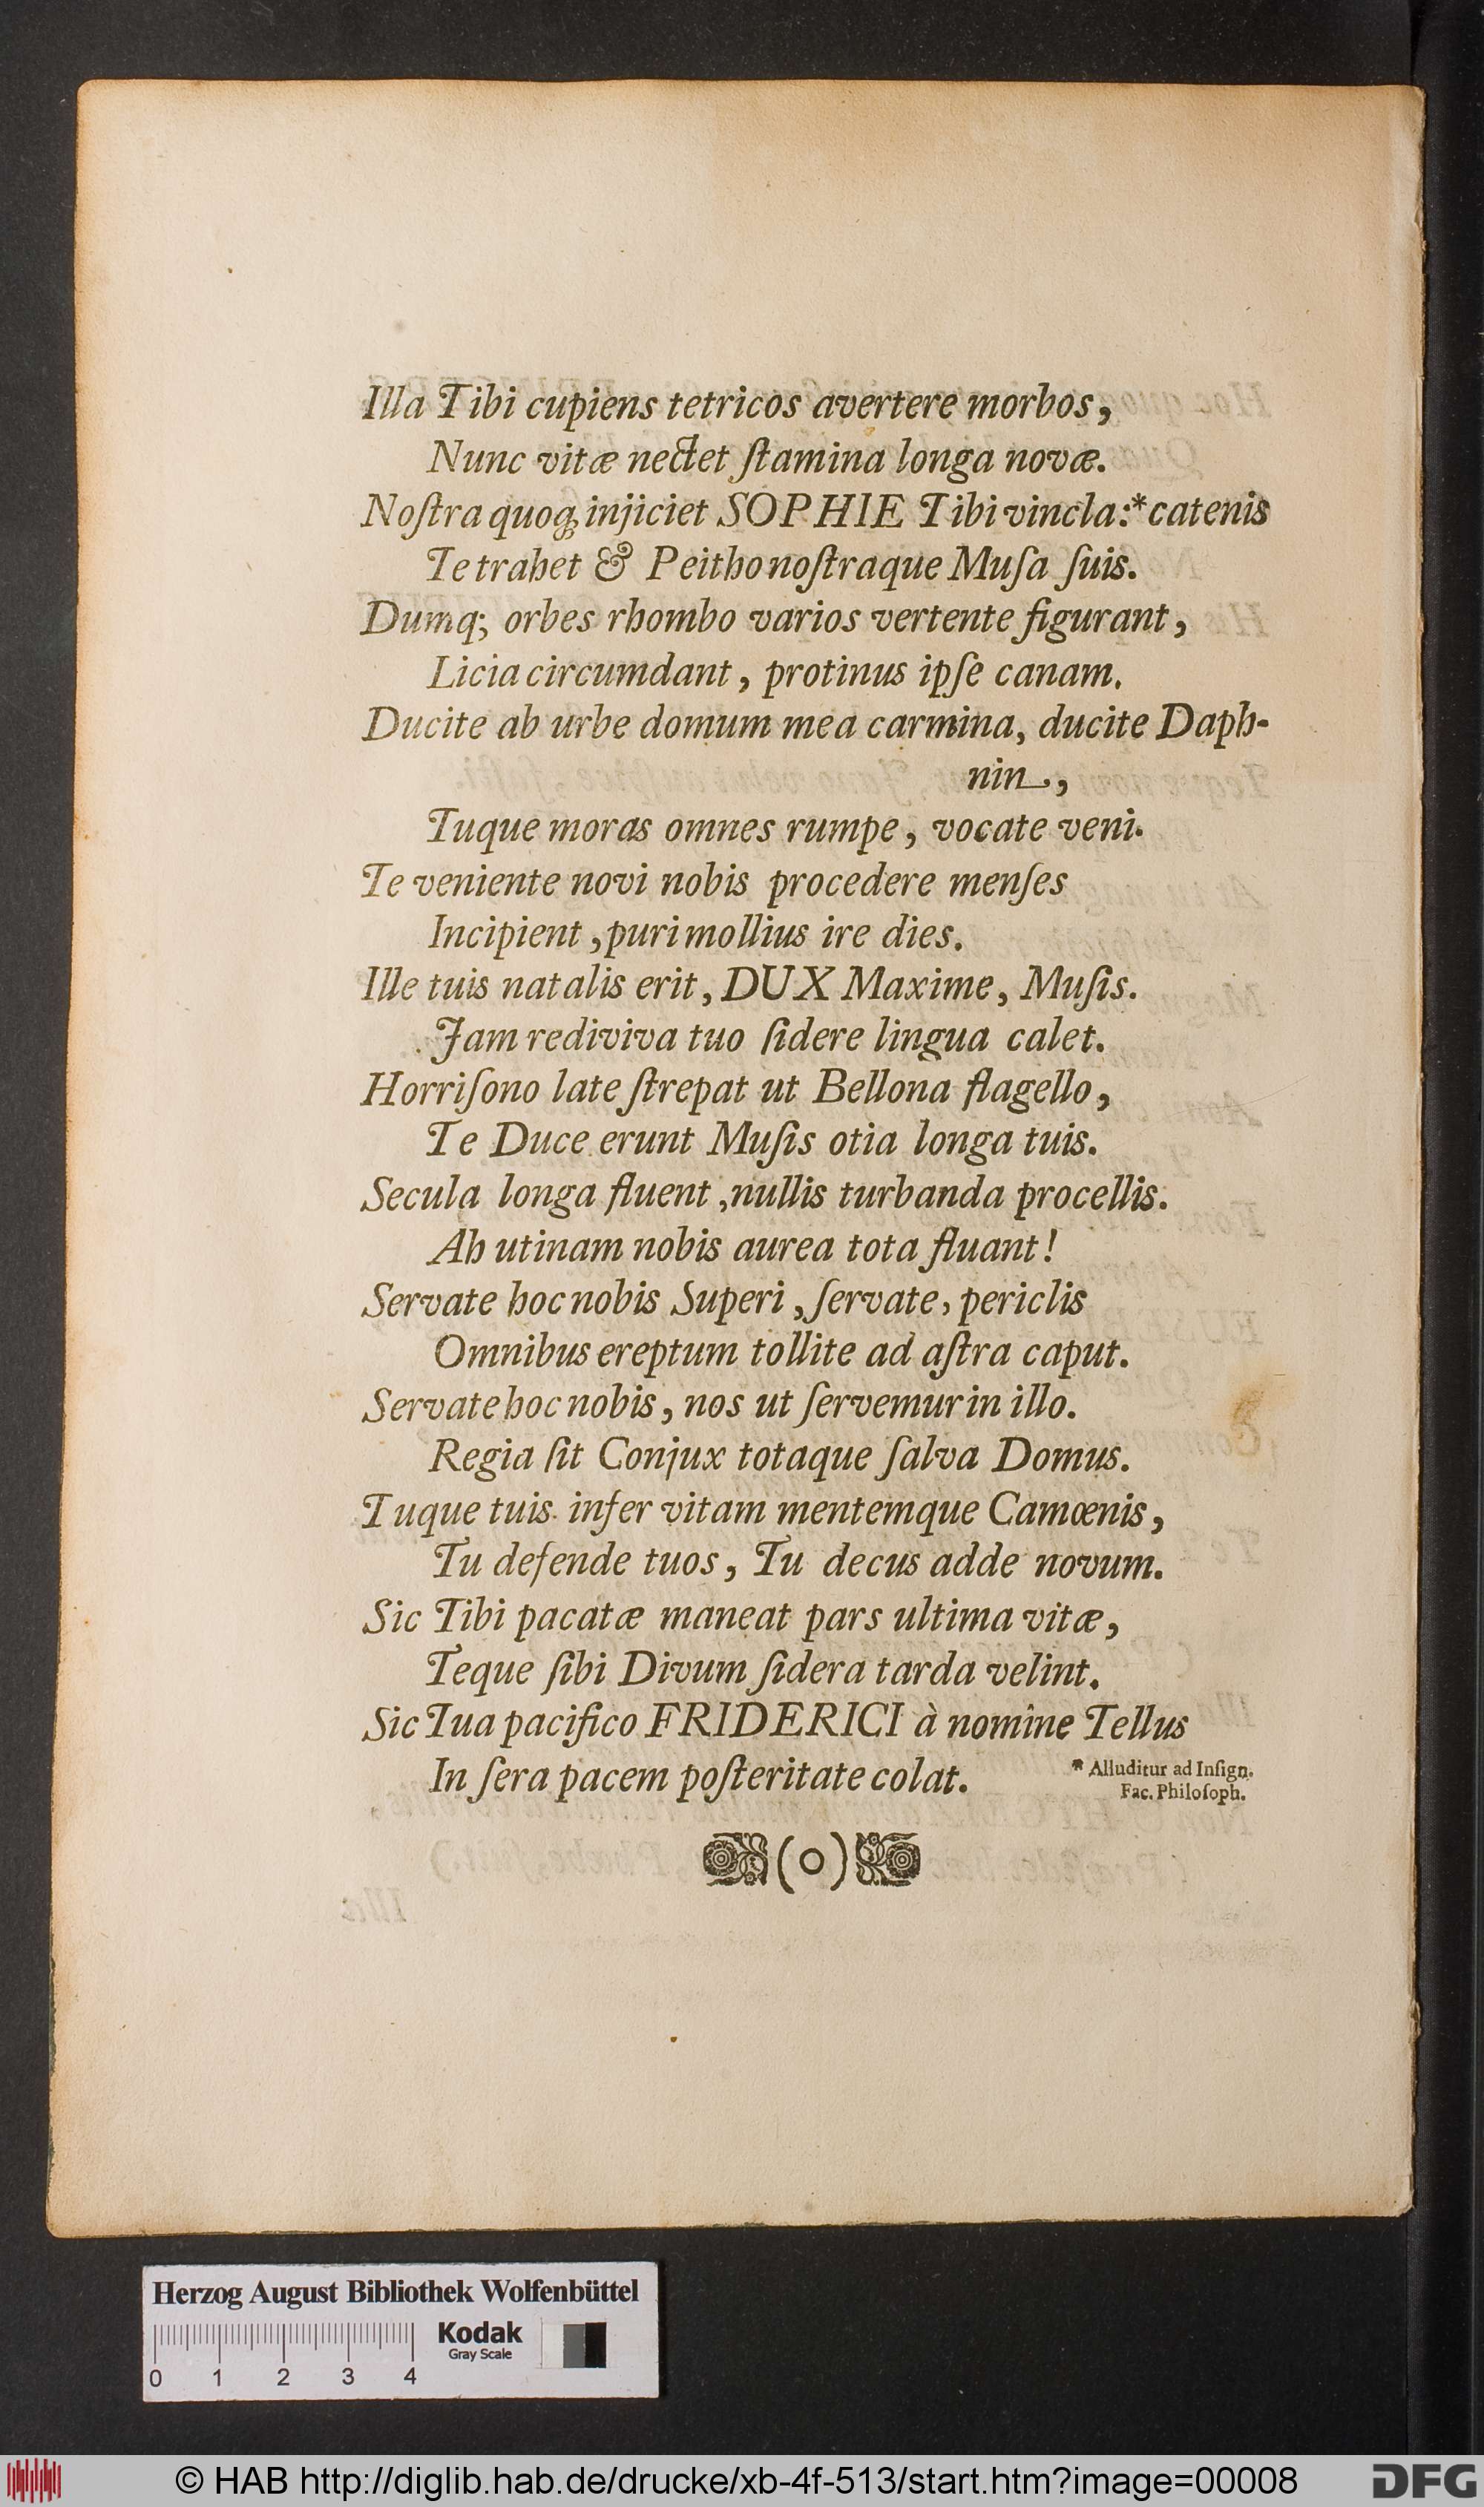 Illa Tibi cupiens tetricos avertere morbos,
Nunc vitæ nectet ſtamina longa novæ.
Noſtra quoq; injiciet SOPHIE Tibi vincla:* catenis
Te trahet & Peitho noſtraque Muſa ſuis.
Dumq; orbes rhombo varios vertente figurant,
Licia circumdant, protinus ipſe canam.
Ducite ab urbe domum mea carmina, ducite Daph-
nin,
Tuque moras omnes rumpe, vocate veni.
Te veniente novi nobis procedere menſes
Incipient, puri mollius ire dies.
Ille tuis natalis erit, DUX Maxime, Muſis.
Jam rediviva tuo ſidere lingua calet.
Horriſono late ſtrepat ut Bellona flagello,
Te Duce erunt Muſis otia longa tuis.
Secula longa fluent, nullis turbanda procellis.
Ah utinam nobis aurea tota fluant!
Servate hoc nobis Superi, ſervate, periclis
Omnibus ereptum tollite ad aſtra caput.
Servate hoc nobis, nos ut ſervemur in illo.
Regia ſit Conjux totaque ſalva Domus.
Tuque tuis infer vitam mentemque Camœnis,
Tu defende tuos, Tu decus adde novum.
Sic Tibi pacatæ maneat pars ultima vitæ,
Teque ſibi Divum ſidera tarda velint.
Sic Tua pacifico FRIDERICI à nomine Tellus
In ſera pacem poſteritate colat.
* Alluditur ad Inſign.
Fac. Philoſoph.
(o)
Herzog August Bibliothek Wolfenbüttel
Kodak
Gray Scale
0 1 2 3 4
© HAB http://diglib.hab.de/drucke/xb-4f-513/start.htm?image=00008
DFG